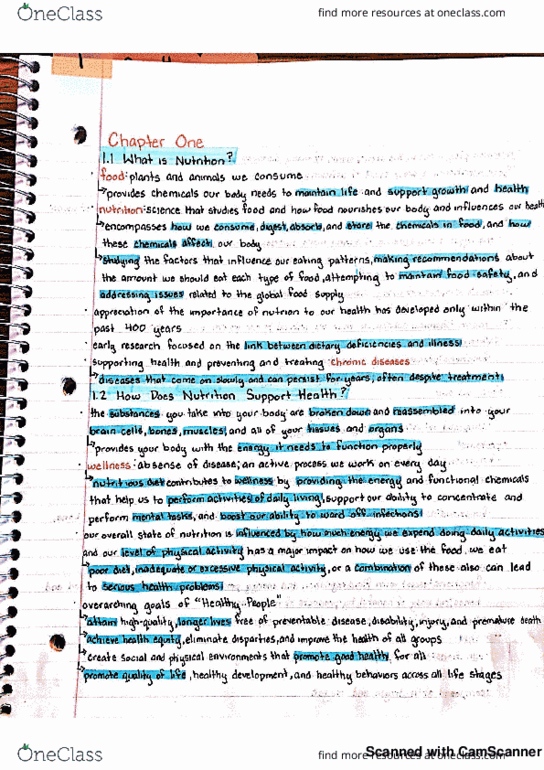 OneClass
find more resources at oneclass.com
Chapter One
1.1 What is Nutrition?
food: plants and animals we consume
provides chemicals our body needs to maintain life and support growth and health
nutrition: science that studies food and how food nourishes our body and influences our health
encompasses how we consume, digest, absorb, and store the chemicals in food, and how
these chemicals affect our body
studying the factors that influence our eating patterns, making recommendations about
the amount we should eat each type of food, attempting to maintain food safety, and
addressing issues related to the global food supply
· appreciation of the importance of nutrition to our health has developed only within the
past 400 years
early research focused on the link between dietary deficiencies and illness
supporting health and preventing and treating chronic diseases
diseases that come on slowly and can persist for years, often despite treatment
1.2 How Does Nutrition Support Health?
the substances you take into your body are broken down and reassembled into your
brain cells, bones, muscles, and all of your tissues and organs
provides your body with the energy it needs to function properly
wellness: absense of disease; an active process we work on every day
nutritious diet contributes to wellness by providing the energy and functional chemicals
that help us to perform activities of daily living, support our ability to concentrate and
perform mental tasks, and boost our ability to ward off infections
our overall state of nutrition is influenced by how much energy we expend doing daily activities
and our level of physical activity has a major impact on how we use the food we eat
poor diet, inadequate or excessive physical activity, or a combination of these also can lead
to serious health problems
overarching goals of "Healthy People"
attain high-quality, longer lives free of preventable disease, disability, injury, and premature death
achieve health equity, eliminate disparties, and improve the health of all groups
create social and physical environments that promote good health for all
promote quality of life, healthy development, and healthy behaviors across all life stages
OneClass
find more resources at oneclass.com
Scanned with CamScanner